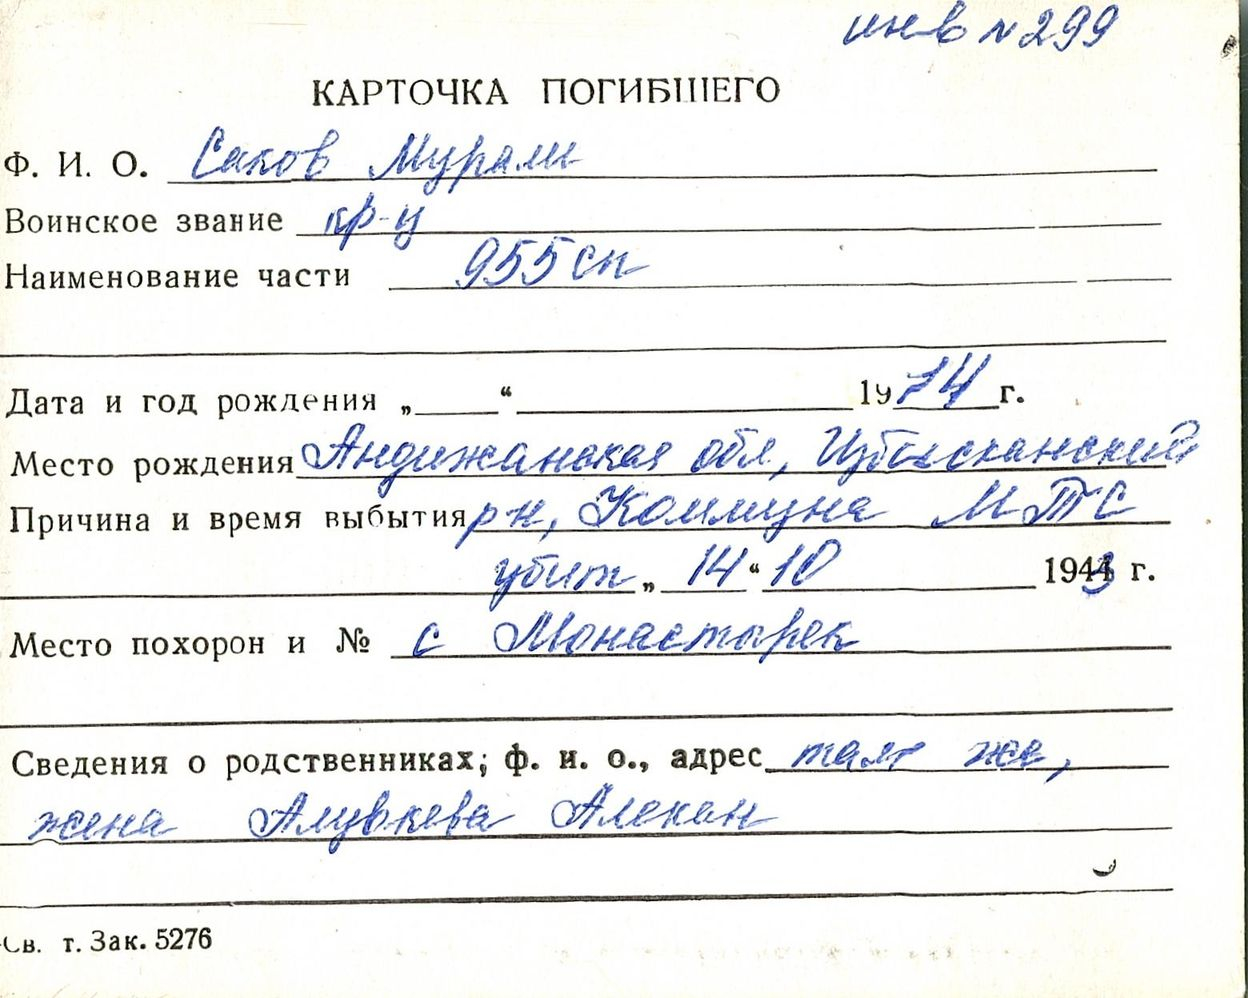 инв N 299
КАРТОЧКА ПОГИБШЕГО
Ф. И. О. Саков Мурали
Воинское звание кр-ц
Наименование части 955 сп
Дата и год рождения „ “ 1914 г.
Место рождения Андижанская обл, Избисканский
Причина и время выбытия р-н, Коммуна МТС
убит „ 14 “ 10 1943 г.
Место похорон и № с Монастырек
Сведения о родственниках; ф. и. о., адрес там же,
жена Алувкева Алекан
Св. т. Зак. 5276